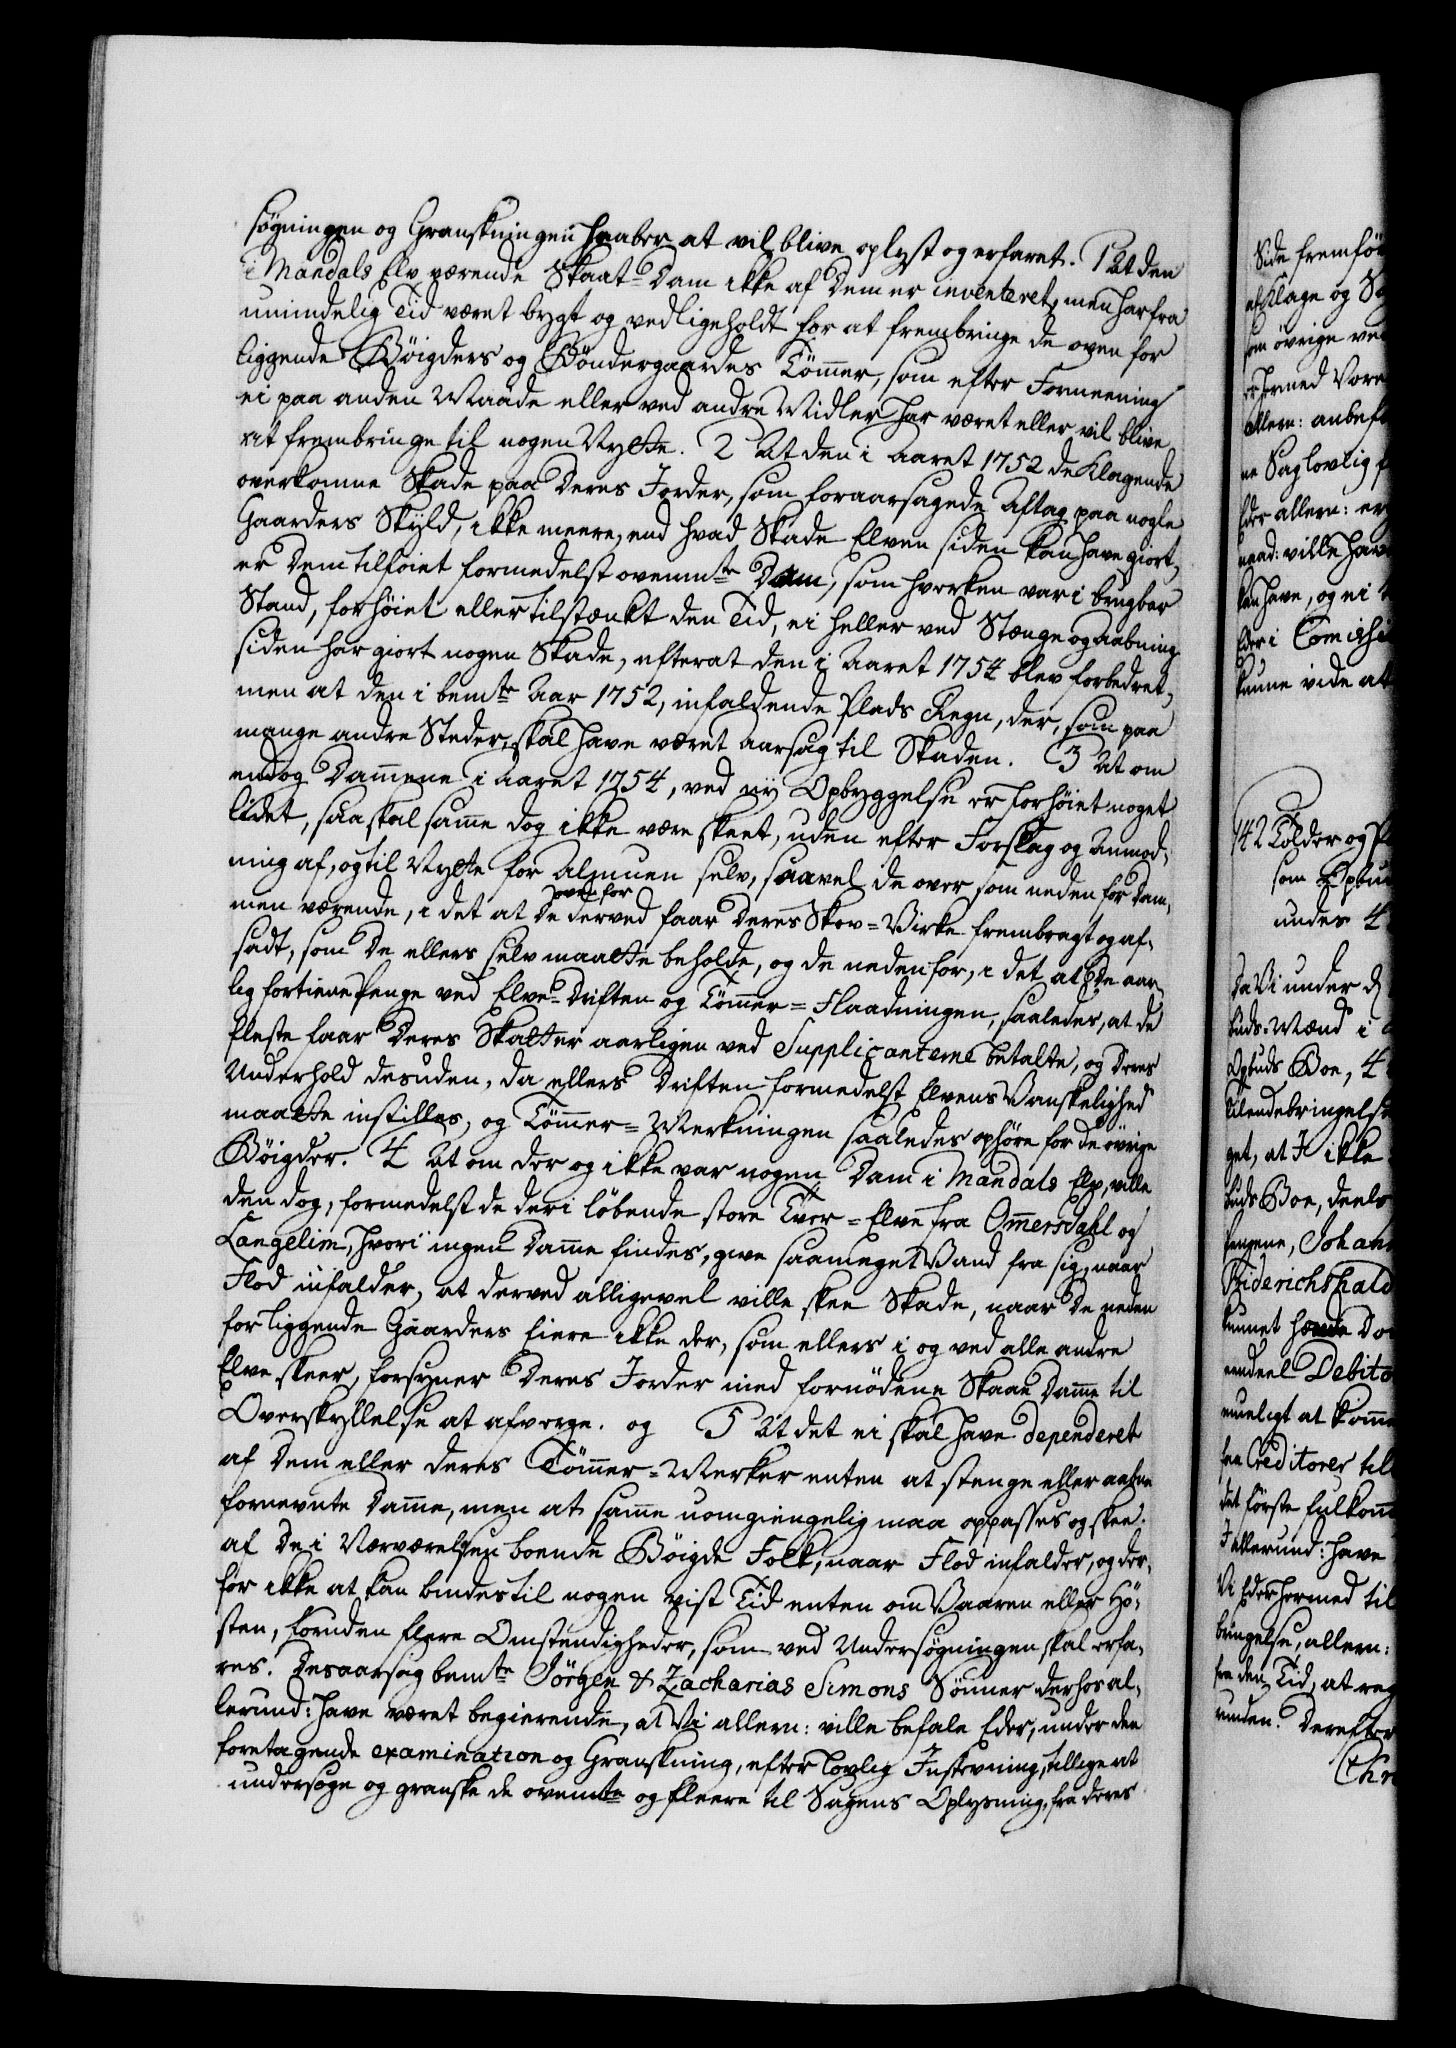 søgningen og Granskningen haaber at vil blive oplyst og erfaret. 1 At den
i Mandals Elv værende Skaat-Dam ikke af Dem er inventeret, men har fra
umindelig Tid været bygt og vedligeholdt for at frembringe de oven for
liggende Bøigders og Bøndergaardes Tømmer, som efter Formeening
ei paa anden Maade eller ved andre Midler har været eller vil blive
at frembringe til nogen Nytte. 2 At den i Aaret 1752 de Klagende
overkomne Skade paa Deres Jorder, som foraarsagede Aftag paa nogle
Gaarders Skyld, ikke meere, end hvad Skade Elven siden kan have giort,
er Dem tilføiet formedelst ovenmte Dam, som hverken var i brugbar
Stand, forhøiet eller tilstænkt den Tid, ei heller ved Stænge og Aabning
siden har giort nogen Skade, efterat den i Aaret 1754 blev forbedret,
men at den i bemte Aar 1752, infaldende Plads Regn, der, som paa
mange andre Steder, skal have været Aarsag til Skaden. 3 At om
endog Dammene i Aaret 1754, ved ny Opbyggelse er forhøiet noget
lidet, saa skal samme dog ikke være skeet, uden efter Forslag og Anmod-
ning af, og til Nytte for Almuen selv, saavel de over som neden for Dam-
men værende, i det at De oven for derved faar Deres Skov-Virke frembragt og af-
sadt, som De ellers selv maatte beholde, og de neden for, i det at De aar-
lig fortiene Penge ved Elve-Driften og Tømmer-Flaadningen, saaledes, at de
fleste faar Deres Skatter aarligen ved Supplicanterne betalte, og Deres
Underhold desuden, da ellers Driften formedelst Elvens Vanskelighed
maatte instilles, og Tømmer-Merkningen saaledes ophøre for de øvrige
Bøigder. 4 At om der og ikke var nogen Dam i Mandals Elv, ville
den dog, formedelst de deri løbende store Tver-Elve fra Ommersdahl og
Langelim, hvori ingen Damme findes, give saa meget Vand fra sig, naar
Flod infalder, at derved alligevel ville skee Skade, naar De neden
for liggende Gaarders Eiere ikke der, som ellers i og ved alle andre
Elve skeer, forsyner Deres Jorder med fornødene Skaae Damme til
Overskyllelse at afverge. og 5 At det ei skal have dependeret
af Dem eller Deres Tømmer-Merker enten at stenge eller aabne
fornevnte Damme, men at samme uomgiengelig maa oppasses og skee
af De i Nærværelsen boende Bøigde Folk, naar Flod infalder, og der-
for ikke at kan bindes til nogen vist Tid enten om Vaaren eller Hø-
sten, foruden flere Omstendigheder, som ved Undersøgningen skal erfa-
res. Desaarsag bemte Jørgen & Zacharias Simons Sønner derhos al-
lerund: have været begierende, at Vi allern: ville befale Eder, under den
foretagende examination og Granskning, efter lovlig Instevning, tillige at
undersøge og granske de ovenmte og fleere til Sagens Oplysning, fra deres
Side fremfør
som øvrige
allern: anbef
ne Saglovlig
kan have, og ei
kunne vide at
142 Tolder og
som
undes 4
Da Vi under
buds-Mænd i
Opbuds Boe, 4
tilendebringelse
get, at I ikke
buds Boe, deels
Johan
Friderichshald
kunnet
eendeel Debito
mueligt at komme
Creditorer til
det første fulkom
I allerund: have
Vi Eder hermed til
bringelse, allern:
fra den Tid, at
unden. Derefter
Chr